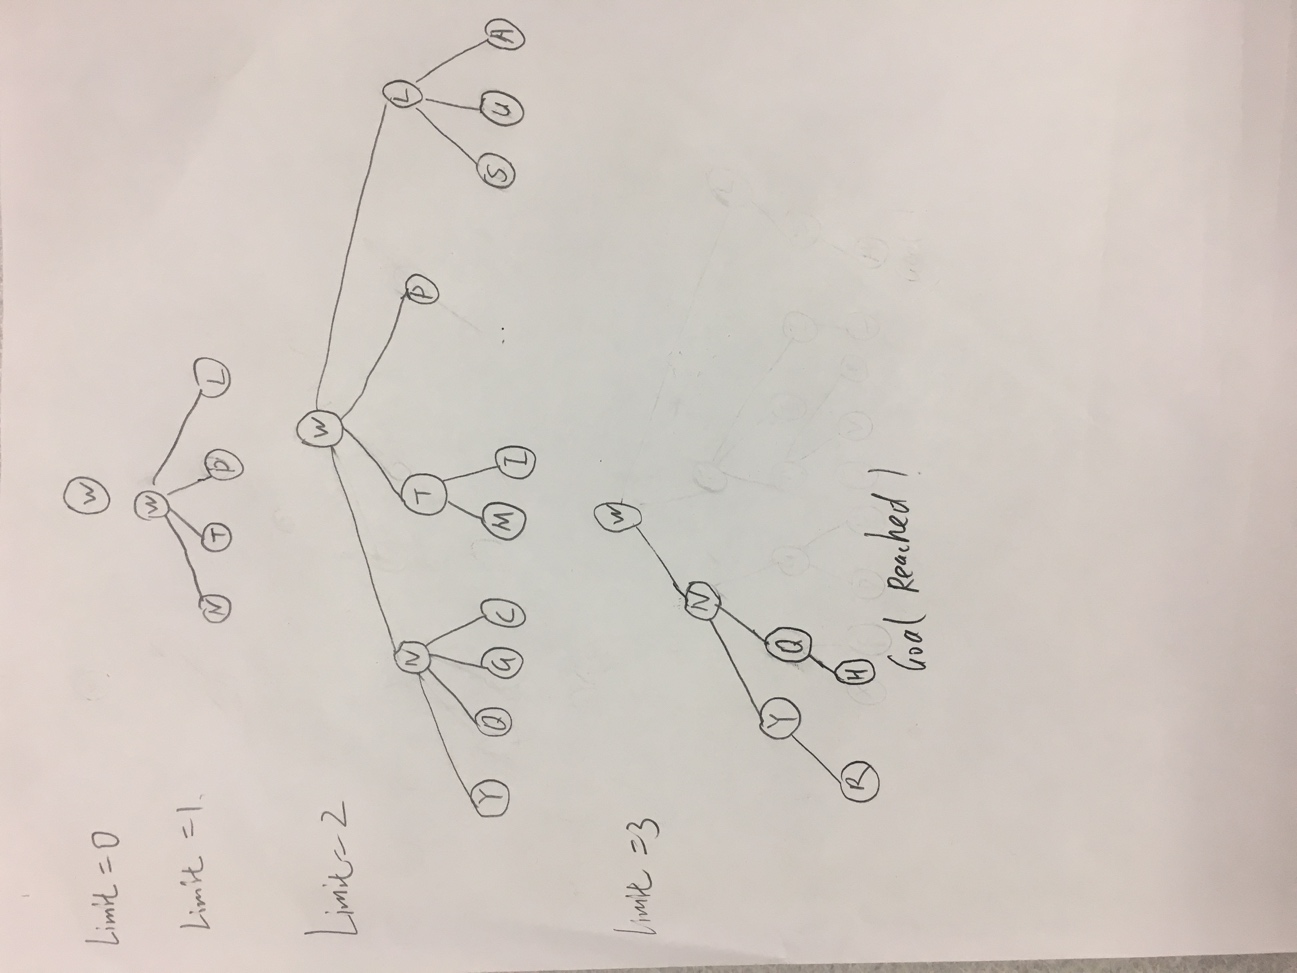 Limit = 0
W
Limit = 1.
W
N T P L
Limit = 2
W
N T P L
Y Q G C M I S U A
Limit = 3
W
N
Y Q
R H
Goal Reached!